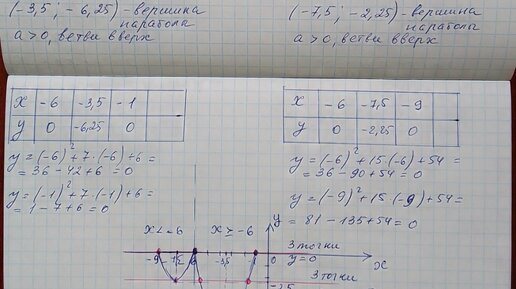 (-3,5 ; -6,25) - вершина
параболы
a > 0, ветви вверх
(-7,5 ; -2,25) - вершина
параболы
a > 0, ветви вверх
x -6 -3,5 -1
y 0 -6,25 0
y = (-6)² + 7·(-6) + 6 =
= 36 - 42 + 6 = 0
y = (-1)² + 7·(-1) + 6 =
= 1 - 7 + 6 = 0
x -6 -7,5 -9
y 0 -2,25 0
y = (-6)² + 15·(-6) + 54 =
= 36 - 90 + 54 = 0
y = (-9)² + 15·(-9) + 54 =
y = 81 - 135 + 54 = 0
x < -6 x ≥ -6 y
3 точки
-9 -7,5 -6 -3,5 -1 0 y = 0 x
3 точки